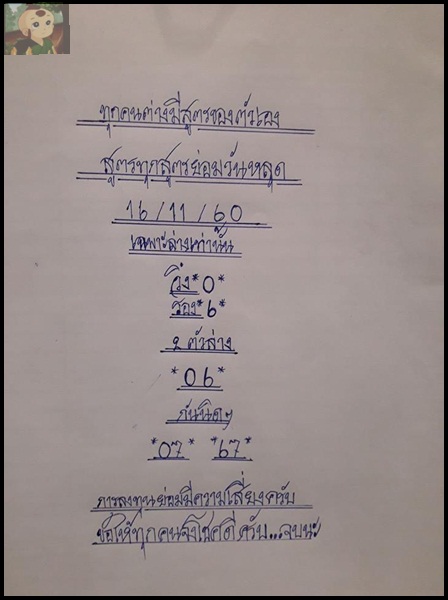 ทุกคนต่างมีสูตรของตัวเอง
สูตรทุกสูตรย่อมวันหลุด
16/11/60
เฉพาะล่างเท่านั้น
วิ่ง*0*
รอง*6*
2 ตัวล่าง
*06*
กันนิดๆ
*07* *67*
การลงทุนย่อมมีความเสี่ยงครับ
ขอให้ทุกคนจงโชคดีครับ...จบนะ